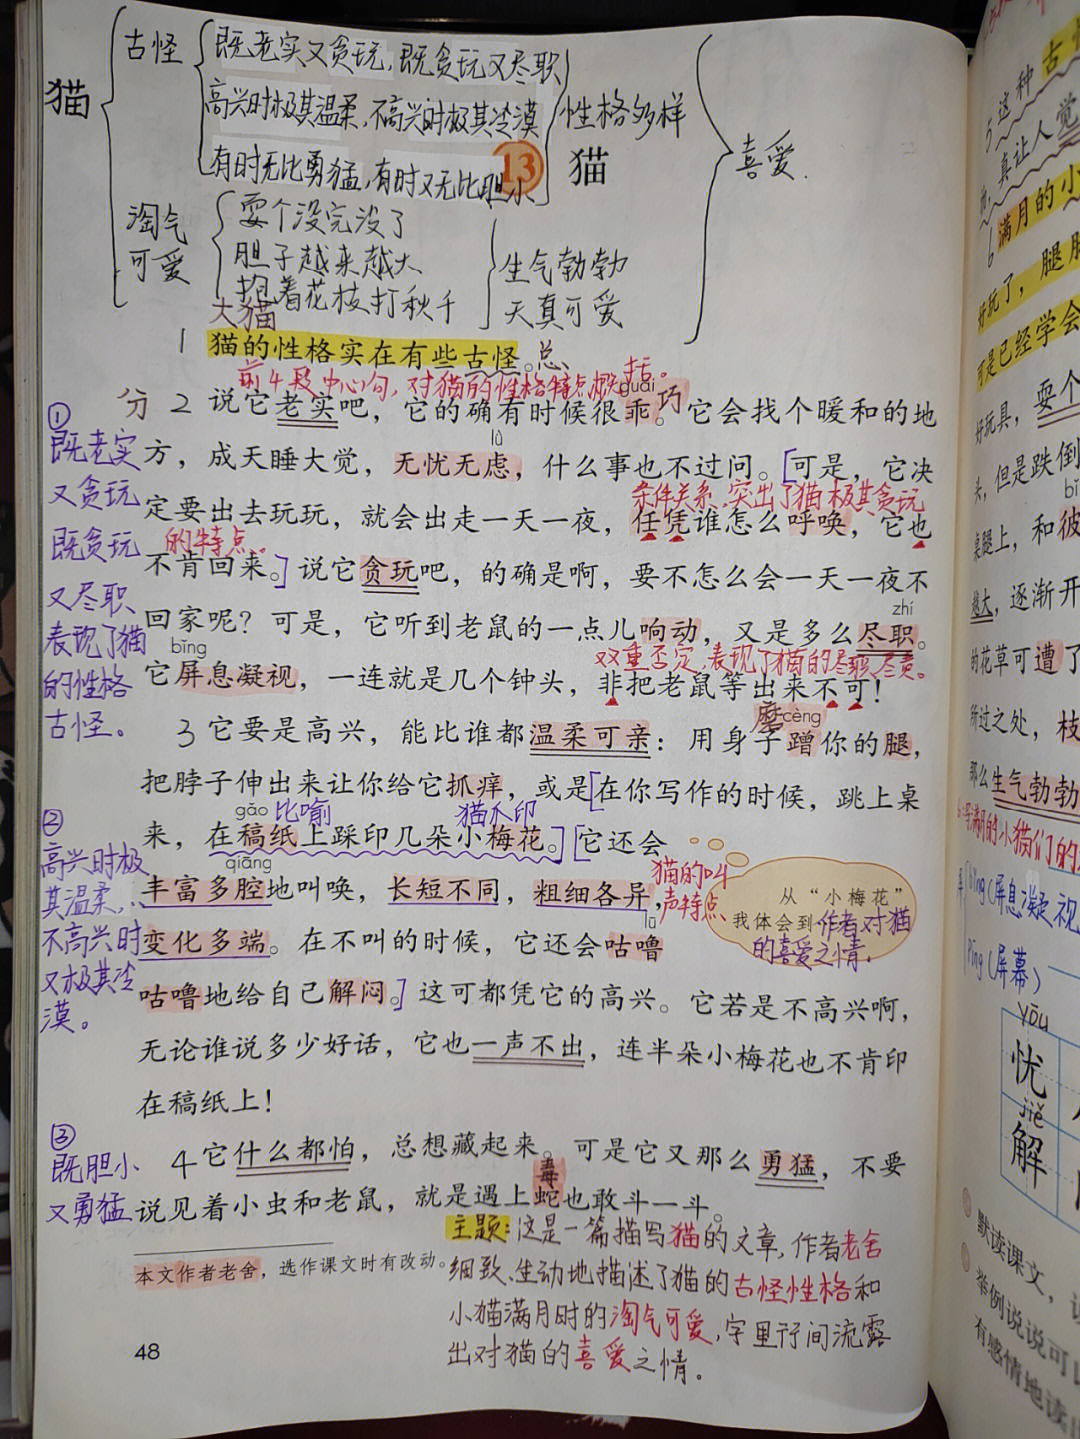 猫
古怪
既老实又贪玩,既贪玩又尽职
高兴时极其温柔,不高兴时极其冷漠
有时无比勇猛,有时又无比胆小
性格多样
喜爱.
13 猫
淘气
可爱
耍个没完没了
胆子越来越大
抱着花枝打秋千
生气勃勃
天真可爱
大猫
1 猫的性格实在有些古怪。总、
前4段中心句,对猫的性格特点概括。
guāi
分 2 说它老实吧，它的确有时候很乖巧。它会找个暖和的地
lǜ
方，成天睡大觉，无忧无虑，什么事也不过问。[可是，它决
条件关系、突出了猫极其贪玩
定要出去玩玩，就会出走一天一夜，任凭谁怎么呼唤，它也
的特点。
不肯回来。]说它贪玩吧，的确是啊，要不怎么会一天一夜不
zhí
回家呢？可是，它听到老鼠的一点儿响动，又是多么尽职。
bǐng
双重否定,表现了猫的尽职、尽责。
它屏息凝视，一连就是几个钟头，非把老鼠等出来不可！
磨 cèng
3 它要是高兴，能比谁都温柔可亲：用身子蹭你的腿，
把脖子伸出来让你给它抓痒，或是[在你写作的时候，跳上桌
gǎo 比喻 猫爪印
来，在稿纸上踩印几朵小梅花。][它还会
qiāng
丰富多腔地叫唤，长短不同，粗细各异，
猫的叫
声特点、
变化多端。在不叫的时候，它还会咕噜
lū
咕噜地给自己解闷。]这可都凭它的高兴。它若是不高兴啊，
无论谁说多少好话，它也一声不出，连半朵小梅花也不肯印
在稿纸上！
从“小梅花”
我体会到作者对猫
的喜爱之情.
4 它什么都怕，总想藏起来。可是它又那么勇猛，不要
毒
说见着小虫和老鼠，就是遇上蛇也敢斗一斗。
①
既老实
又贪玩
既贪玩
又尽职
表现了猫
的性格
古怪。
②
高兴时极
其温柔,
不高兴时
又极其冷
漠。
③
既胆小
又勇猛
本文作者老舍，选作课文时有改动。
主题:这是一篇描写猫的文章,作者老舍
细致、生动地描述了猫的古怪性格和
小猫满月时的淘气可爱,字里行间流露
出对猫的喜爱之情。
48
5 这种古
真让人觉
6 满月的小
好玩了，腿
可是已经学会
好玩具，耍个
头，但是跌倒
桌腿上，和彼
越大，逐渐开
的花草可遭了
所过之处，枝
那么生气勃勃
bǐng(屏息凝视
píng(屏幕)
yōu
忧
jiě
解
默读课文，
举例说说可
有感情地读